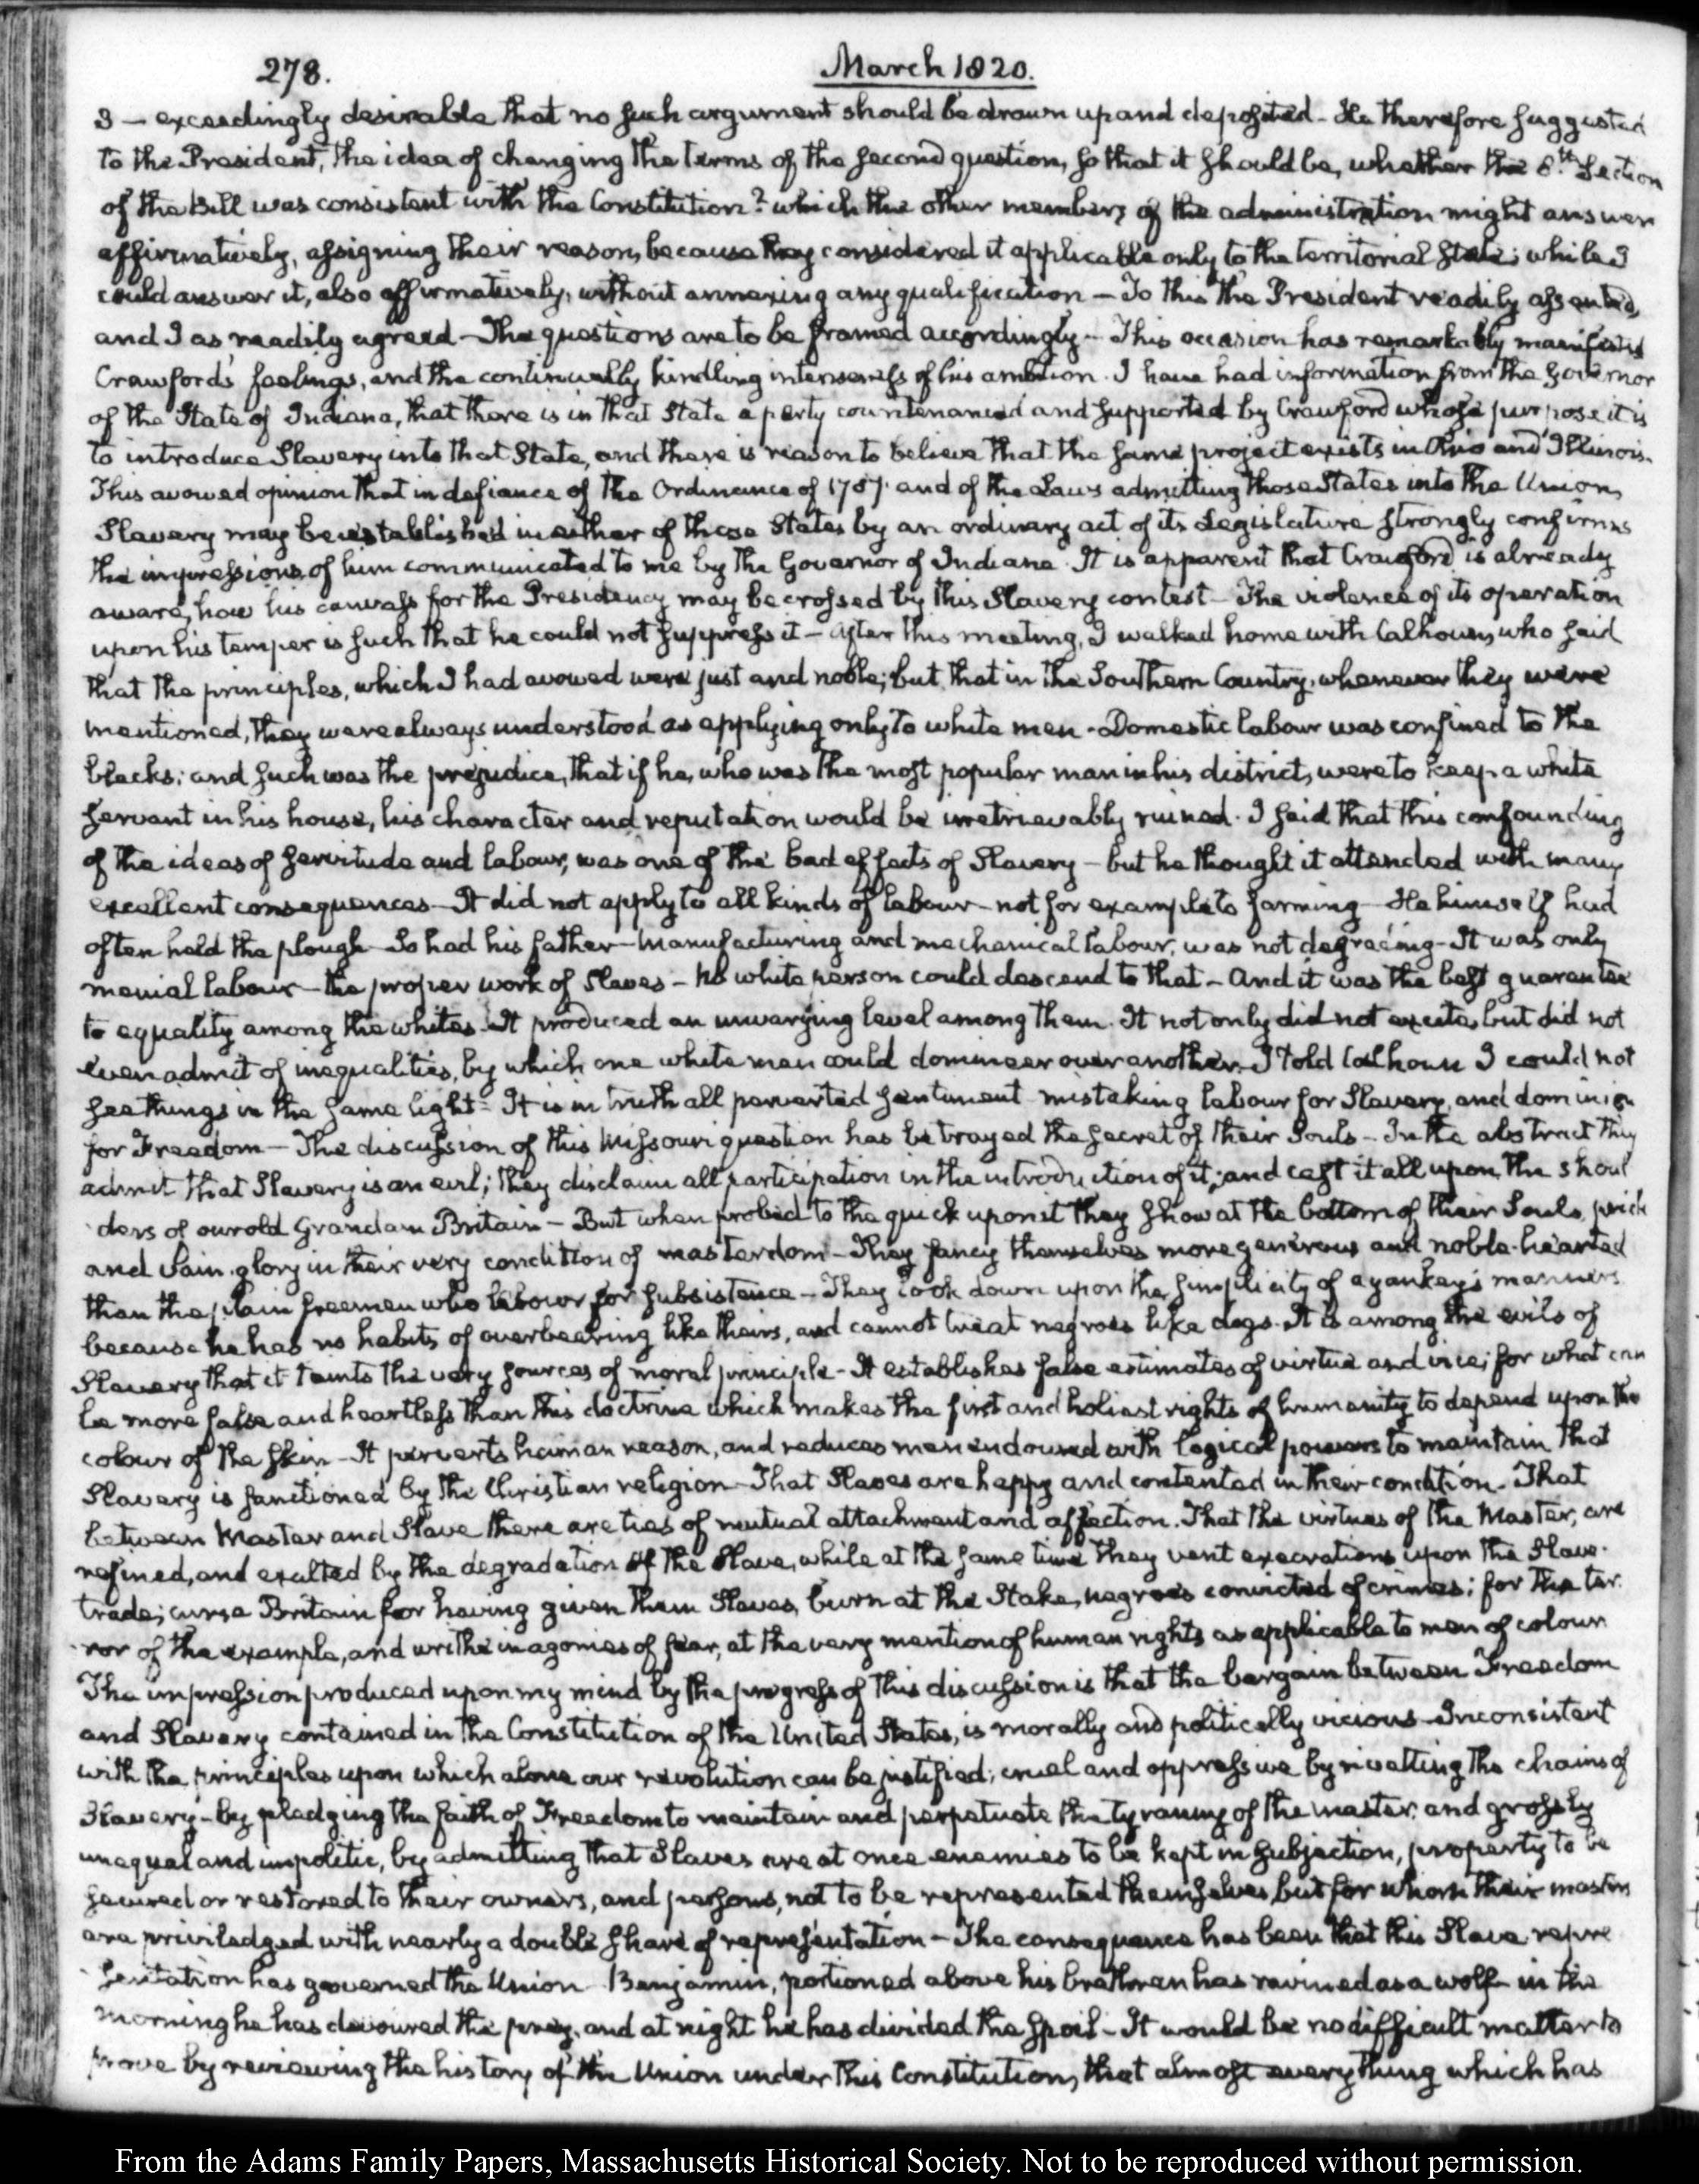 278.
March 1820.
3 — exceedingly desirable that no such argument should be drawn up and deposited - He therefore suggested
to the President, the idea of changing the terms of the second question, so that it should be, whether the 8.th Section
of the Bill was consistent with the Constitution? which the other members of the administration might answer
affirmatively, assigning their reason, because they considered it applicable only to the territorial State; while I
could answer it, also affirmatively, without annexing any qualification — To this the President readily assented,
and I as readily agreed — The questions are to be framed accordingly — This occasion has remarkably manifested
Crawford's feelings, and the continually kindling intenseness of his ambition. I have had information from the Governor
of the State of Indiana, that there is in that State a party countenanced and supported by Crawford whose purpose it is
to introduce Slavery into that State, and there is reason to believe that the same project exists in Ohio and Illinois.
This avowed opinion that in defiance of the Ordinance of 1787. and of the Laws admitting those States into the Union,
Slavery may be established in either of those States by an ordinary act of its Legislature strongly confirms
the impressions of him communicated to me by the Governor of Indiana. It is apparent that Crawford is already
aware, how his canvass for the Presidency may be crossed by this Slavery contest — The violence of its operation
upon his temper is such that he could not suppress it — After this meeting, I walked home with Calhoun, who said
that the principles, which I had avowed were just and noble; but that in the Southern Country, whenever they were
mentioned, they were always understood as applying only to white men - Domestic labour was confined to the
blacks; and such was the prejudice, that if he, who was the most popular man in his district, were to keep a white
servant in his house, his character and reputation would be irretrievably ruined. I said that this confounding
of the ideas of servitude and labour, was one of the bad effects of Slavery — but he thought it attended with many
excellent consequences — It did not apply to all kinds of labour — not for example to farming — He himself had
often held the plough — So had his father — Manufacturing and mechanical labour, was not degrading - It was only
menial labour — the proper work of Slaves - No white person could descend to that - And it was the best guarantee
to equality among the whites. It produced an unvarying level among them. It not only did not excite, but did not
even admit of inequalities, by which one white man could domineer over another. I told Calhoun I could not
see things in the same light - It is in truth all perverted sentiment - mistaking labour for Slavery, and dominion
for Freedom — The discussion of this Missouri question has betrayed the secret of their Souls - In the abstract they
admit that Slavery is an evil; they disclaim all participation in the introduction of it; and cast it all upon the shoul
ders of our old Grandam Britain — But when probed to the quick upon it they show at the bottom of their Souls, pride
and vain-glory in their very condition of masterdom - They fancy themselves more generous and noble-hearted
than the plain freemen who labour for subsistence - They look down upon the simplicity of a yankey's manners
because he has no habits of overbearing like theirs, and cannot treat negroes like dogs. It is among the evils of
Slavery that it taints the very sources of moral principle - It establishes false estimates of virtue and vice; for what can
be more false and heartless than this doctrine which makes the first and holiest rights of humanity to depend upon the
colour of the skin - It perverts human reason, and reduces men endowed with logical powers to maintain that
Slavery is sanctioned by the Christian religion - That Slaves are happy and contented in their condition - That
between Master and Slave there are ties of mutual attachment and affection. That the virtues of the Master, are
refined, and exalted by the degradation of the Slave, while at the same time they vent execrations upon the Slave-
trade; curse Britain for having given them Slaves, burn at the Stake, negroes convicted of crimes; for the ter-
ror of the example, and writhe in agonies of fear, at the very mention of human rights as applicable to men of colour
The impression produced upon my mind by the progress of this discussion is that the bargain between Freedom
and Slavery contained in the Constitution of the United States, is morally and politically vicious - Inconsistent
with the principles upon which alone our revolution can be justified; cruel and oppressive by rivetting the chains of
Slavery - by pledging the faith of Freedom to maintain and perpetuate the tyranny of the master; and grossly
unequal and impolitic, by admitting that Slaves are at once enemies to be kept in subjection, property to be
secured or restored to their owners, and persons, not to be represented themselves, but for whom their masters
are priviledged with nearly a double share of representation - The consequence has been that this Slave repre
sentation has governed the Union - Benjamin, portioned above his brethren has ravined as a wolf - in the
morning he has devoured the prey, and at night he has divided the spoil - It would be no difficult matter to
prove by reviewing the history of the Union under this Constitution, that almost every thing which has
From the Adams Family Papers, Massachusetts Historical Society. Not to be reproduced without permission.